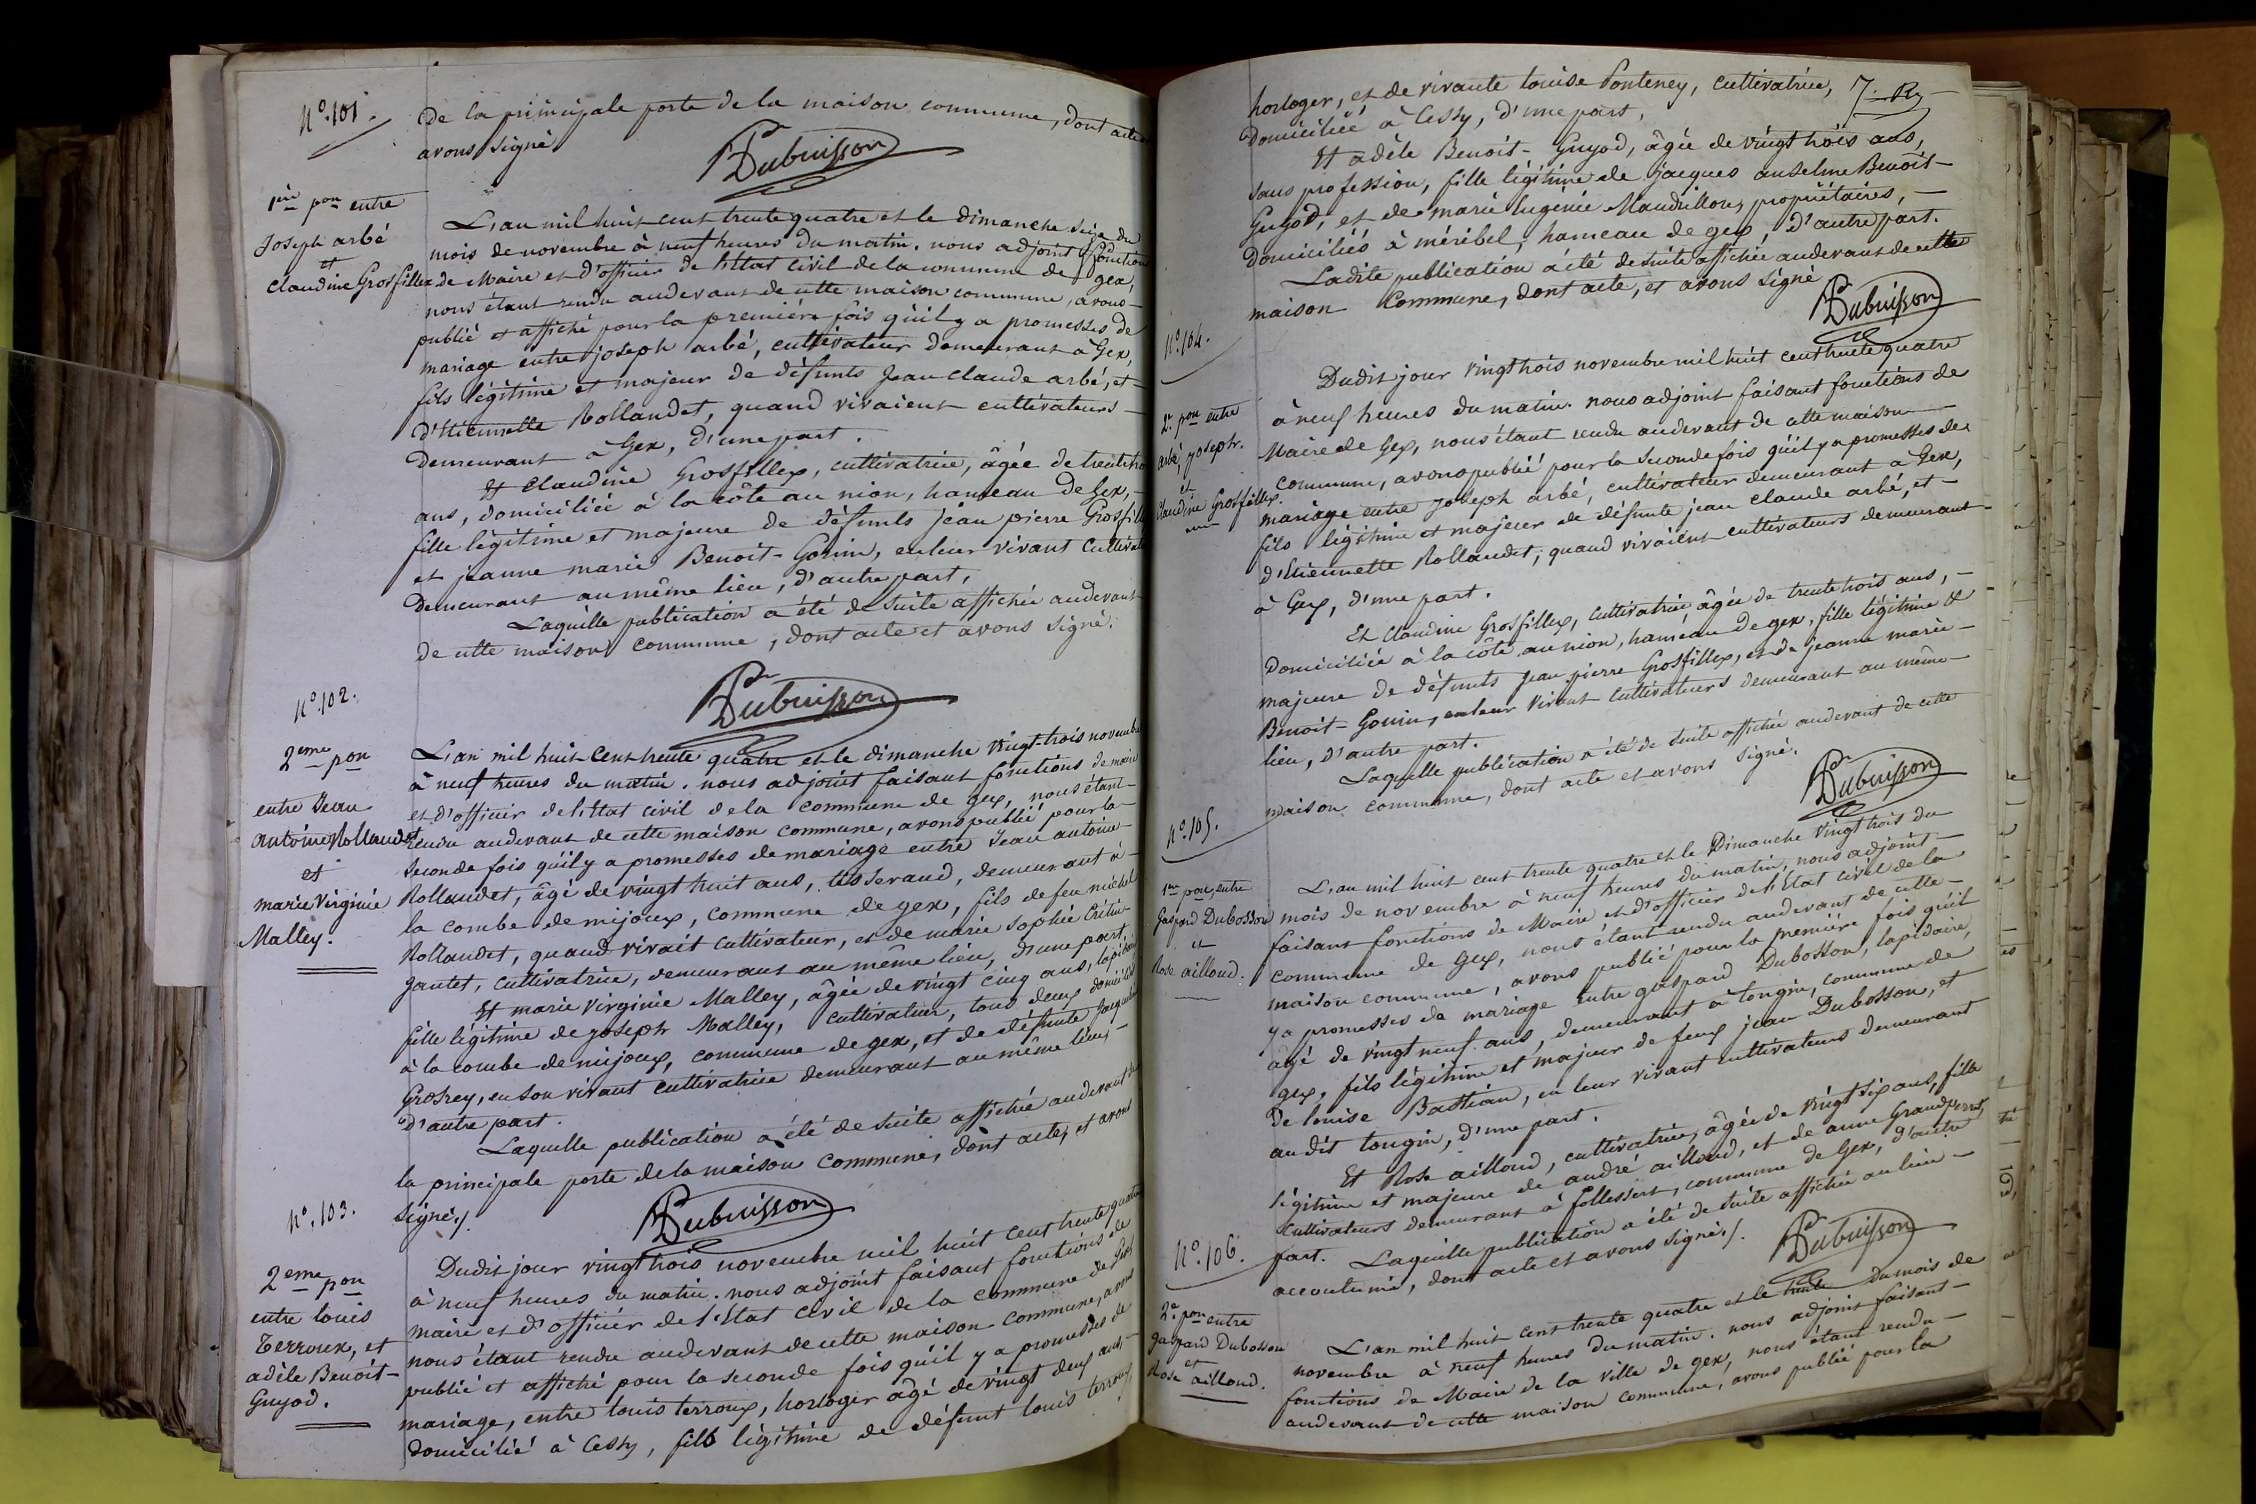 N.° 101.
De la principale porte de la maison commune, dont acte et
avons signé
Dubuisson
1ère pon entre
Joseph arbé
et
Claudine Grosfillex
L'an mil huit cent trente quatre et le dimanche seize du
mois de novembre à neuf heures du matin. nous adjoint fonctions
de Maire et d'officier de l'état civil de la commune de gex,
nous étant rendu audevant de cette maison commune, avons
publié et affiché pour la première fois qu'il y a promesses de
mariage entre joseph arbé, cultivateur demeurant à Gex,
fils légitime et majeur de défunts Jean Claude arbé, et
d'Etiennette Rollandet, quand vivaient cultivateurs
demeurant à Gex, d'une part.
Et Claudine Grosfillex, cultivatrice, âgée de trente trois
ans, domiciliée à la côte au nion, hameau de Gex,
fille légitime et majeure de défunts Jean pierre Grosfillex
et jeanne marie Benoit-Gonin, en leur vivant Cultivateurs
demeurant au même lieu, d'autre part,
Laquelle publication a été de suite affichée audevant
de cette maison commune, dont acte et avons signé.
Dubuisson
N.° 102.
2eme pon
entre Jean
antoine Rollandet
et
marie Virginie
Malley.
L'an mil huit cent trente quatre et le dimanche vingt-trois novembre
à neuf heures du matin. nous adjoint faisant fonctions de maire
et d'officier de l'état civil de la commune de gex, nous étant
rendu audevant de cette maison commune, avons publié pour la
seconde fois qu'il y a promesses de mariage entre Jean antoine
Rollandet, âgé de vingt huit ans, tisserand, demeurant à
la combe de mijoux, commune de gex, fils de feu michel
Rollandet, quand vivait cultivateur, et de marie sophie Crétin-
gautet, cultivatrice, demeurant au même lieu, d'une part,
Et marie Virginie Malley, âgée de vingt cinq ans, lapidaire
fille légitime de joseph Malley, cultivateur, tous deux domiciliés
à la combe de mijoux, commune de gex, et de défunte
Grosrey, en son vivant cultivatrice demeurant au même lieu,
d'autre part.
Laquelle publication a été de suite affichée audevant de
la principale porte de la maison commune, dont acte, et avons
signé./.
Dubuisson
N.° 103.
2eme pon
entre louis
Terroux, et
adèle Benoît-
Guyod.
Dudit jour vingt trois novembre mil huit cent trente quatre
à neuf heures du matin. nous adjoint faisant fonctions de
maire et d'officier de l'Etat civil de la commune de Gex
nous étant rendu audevant de cette maison commune, avons
publié et affiché pour la seconde fois qu'il y a promesses de
mariage, entre louis terroux, horloger âgé de vingt deux ans,
domicilié à Cessy, fils légitime de défunt louis terroux,
horloger, et de vivante louise Ponteney, cultivatrice,
domiciliée à Cessy, d'une part,
Et adèle Benoit-Guyod, âgée de vingt trois ans,
sans profession, fille légitime de jacques anselme Benoît-
Guyod, et de marie Eugénie Maudrillon, propriétaires,
domiciliés à méribel, hameau de gex, d'autre part.
Ladite publication a été de suite affichée audevant de cette
maison Commune, dont acte, et avons signé
Dubuisson
N.° 104.
2e. pon entre
arbé, joseph.
et
Claudine Grosfillex.
Dudit jour vingt trois novembre mil huit cent trente quatre
à neuf heures du matin. nous adjoint faisant fonctions de
Maire de Gex, nous étant rendu audevant de cette maison
commune, avons publié pour la seconde fois qu'il y a promesses de
mariage entre Joseph arbé, cultivateur demeurant à Gex,
fils légitime et majeur de défunts jean claude arbé, et
d'Etiennette Rollandet, quand vivaient cultivateurs demeurant
à Gex, d'une part.
Et Claudine Grosfillex, cultivatrice âgée de trente trois ans,
domiciliée à la côte au nion, hameau de gex, fille légitime &
majeure de défunts jean pierre Grosfillex, et de jeanne marie
Benoit-Gonin, en leur vivant cultivateurs demeurant au même
lieu, d'autre part.
Laquelle publication a été de suite affichée audevant de cette
maison commune, dont acte et avons signé.
Dubuisson
N.° 105.
1ère pon, entre
Gaspard Dubosson
"
Rose ailloud.
L'an mil huit cent trente quatre et le Dimanche vingt trois du
mois de novembre à neuf heures du matin, nous adjoint
faisant fonctions de Maire et d'officier de l'Etat civil de la
commune de Gex, nous étant rendu audevant de cette
maison commune, avons publié pour la première fois qu'il
y a promesses de mariage entre gaspard Dubosson, lapidaire,
âgé de vingt neuf ans, demeurant à tougin, commune de
gex, fils légitime et majeur de feux jean Dubosson, et
de louise Bastian, en leur vivant cultivateurs demeurant
audit tougin, d'une part.
Et Rose ailloud, cultivatrice, âgée de vingt six ans, fille
légitime et majeure de andré ailloud, et de anne Grandperret,
cultivateurs demeurant à follessert, commune de Gex, d'autre
part. Laquelle publication a été de suite affichée au lieu
accoutumé, dont acte et avons signé./.
Dubuisson
N.° 106.
2e. pon entre
gaspard Dubosson
et
Rose ailloud.
L'an mil huit cent trente quatre et le trente du mois de
novembre à neuf heures du matin. nous adjoint faisant
fonctions de Maire de la ville de gex, nous étant rendu
audevant de cette maison commune, avons publié pour la